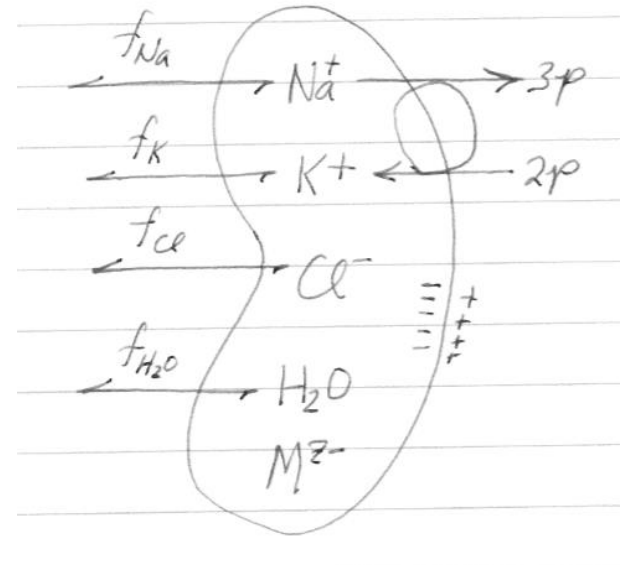 f_Na Na⁺ 3p
f_K K+ 2p
f_Cl Cl⁻
− +
− +
− +
− +
f_H₂O H₂O
M^z−